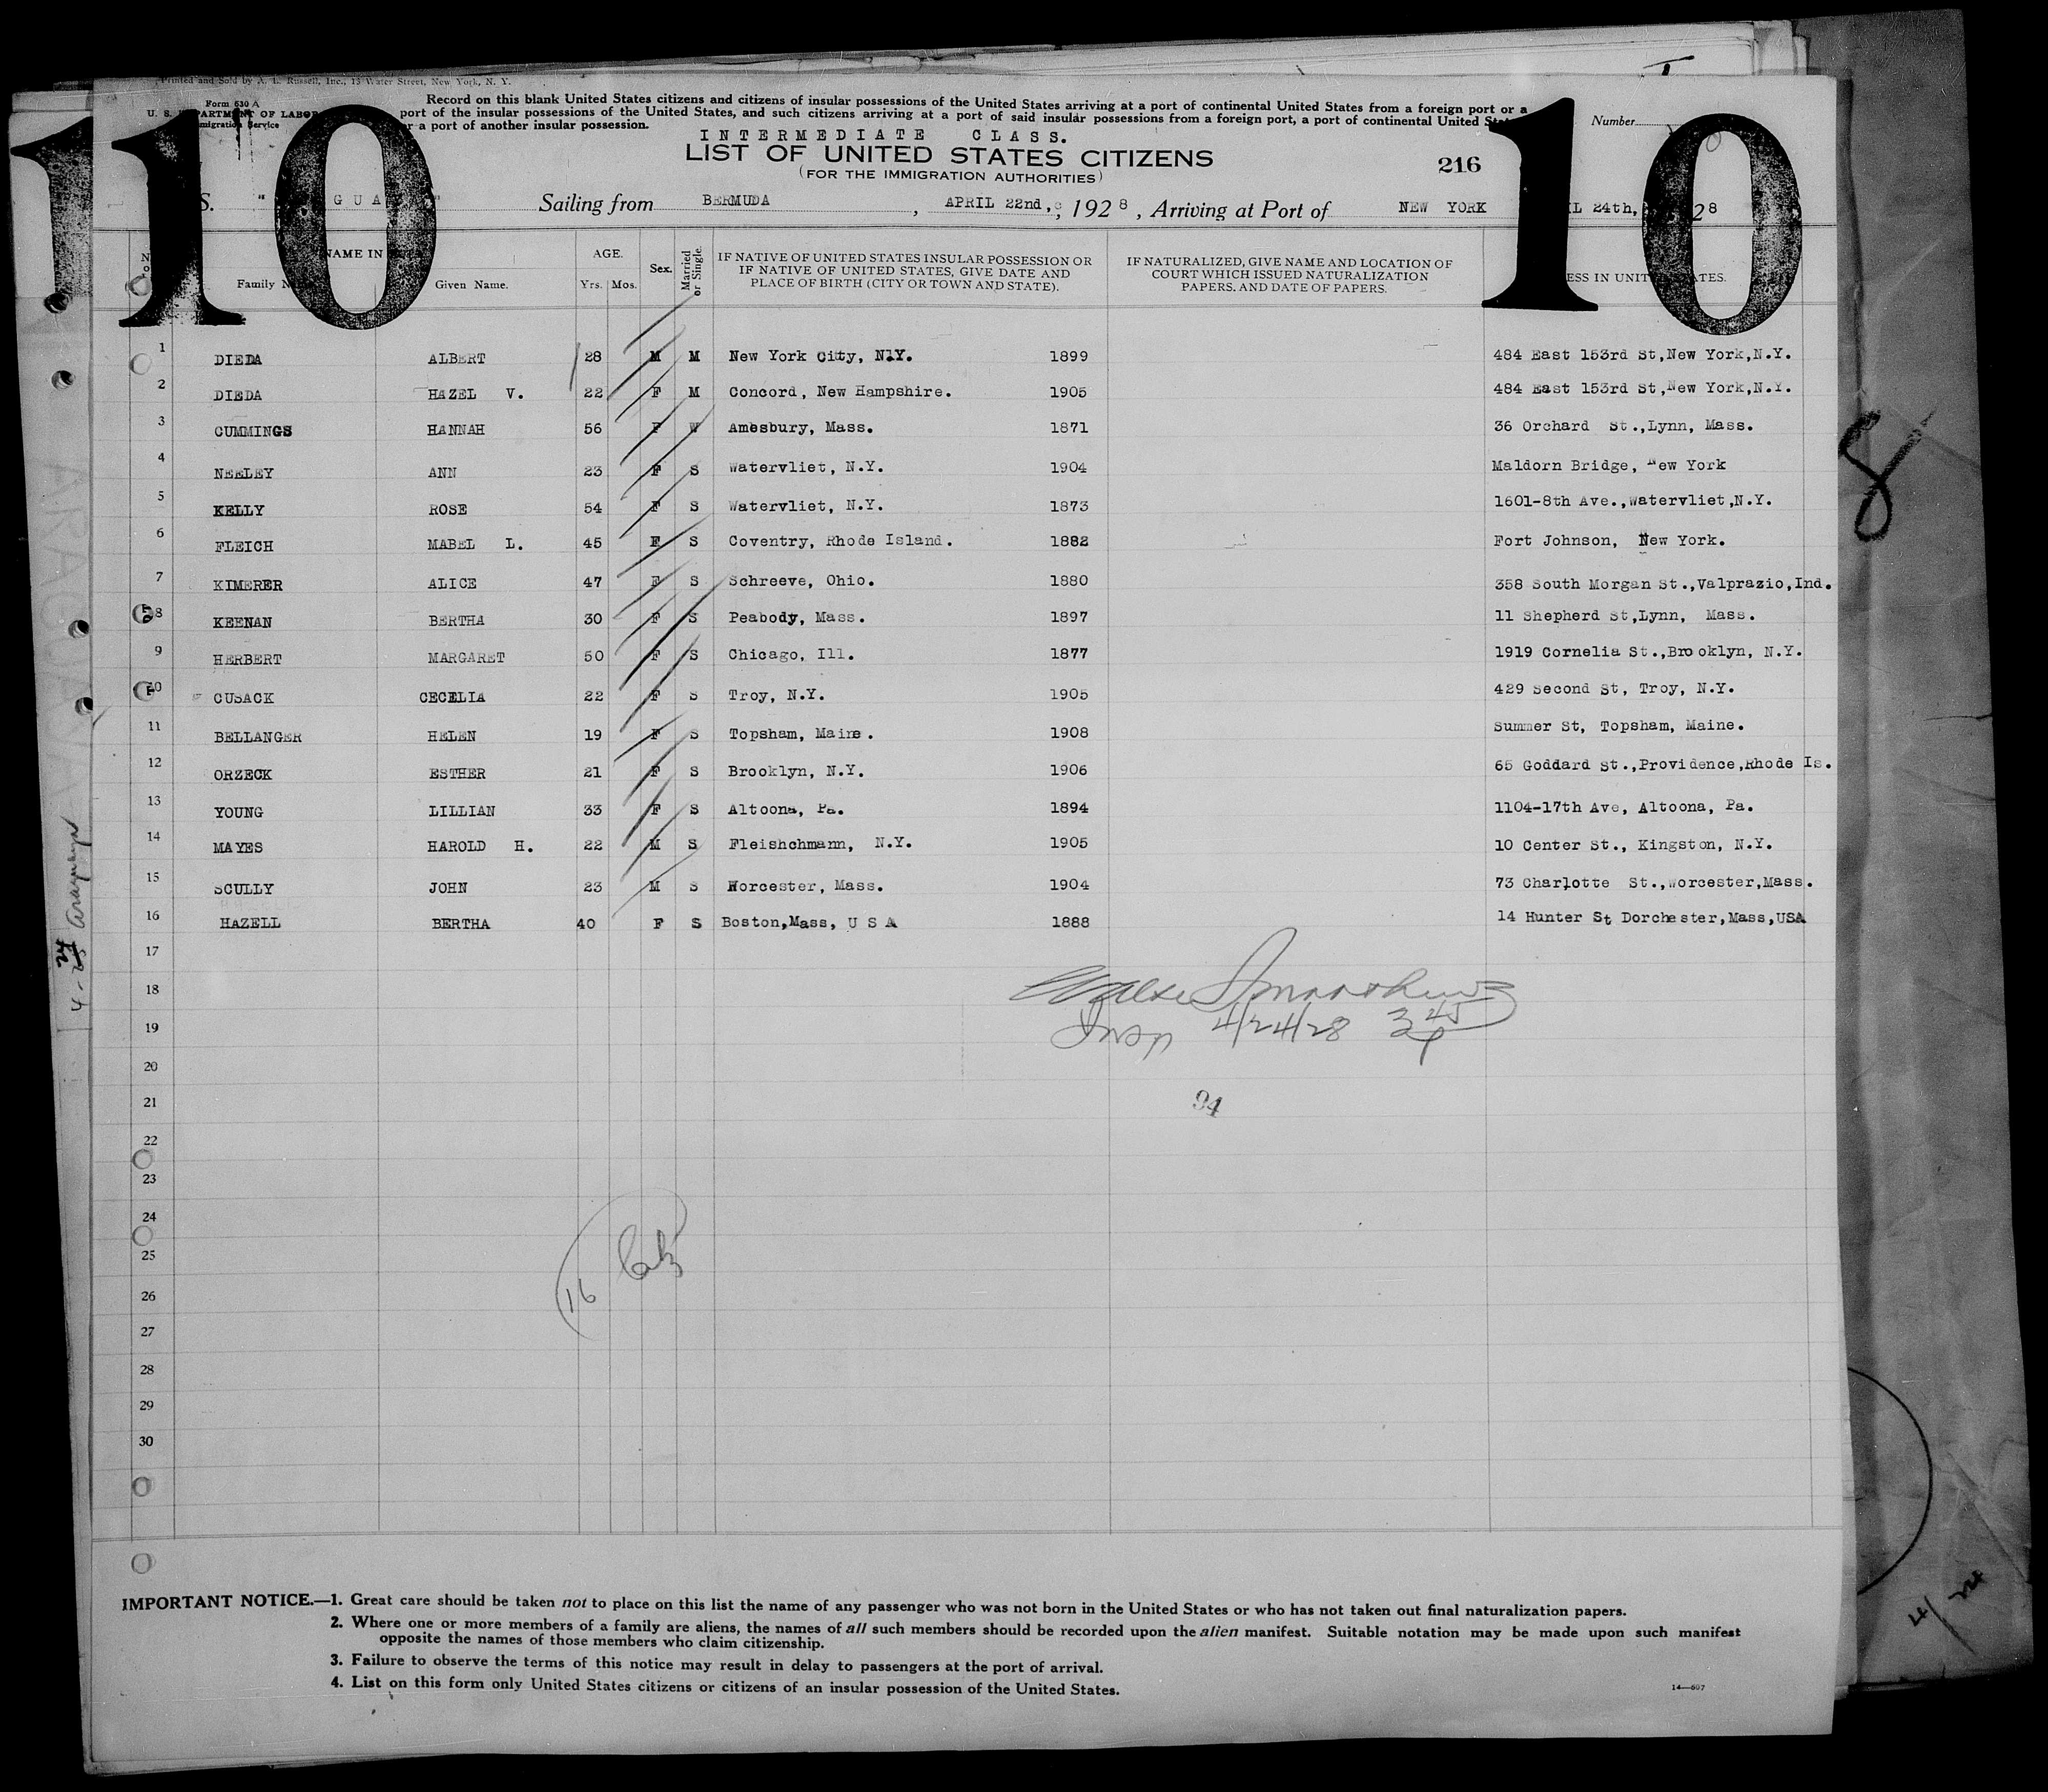 Printed and Sold by A. L. Russell, Inc., 13 Water Street, New York, N. Y.
Form 630 A
U. S. DEPARTMENT OF LABOR
Immigration Service
Record on this blank United States citizens and citizens of insular possessions of the United States arriving at a port of continental United States from a foreign port or a
port of the insular possessions of the United States, and such citizens arriving at a port of said insular possessions from a foreign port, a port of continental United St
or a port of another insular possession.
Number
10
10
INTERMEDIATE CLASS.
LIST OF UNITED STATES CITIZENS
(FOR THE IMMIGRATION AUTHORITIES)
216
S. " GUA " Sailing from BERMUDA, APRIL 22nd, 1928, Arriving at Port of NEW YORK IL 24th, 28
NAME IN
Family N Given Name.
AGE.
Yrs. Mos.
Sex.
Married or Single.
IF NATIVE OF UNITED STATES INSULAR POSSESSION OR
IF NATIVE OF UNITED STATES, GIVE DATE AND
PLACE OF BIRTH (CITY OR TOWN AND STATE).
IF NATURALIZED, GIVE NAME AND LOCATION OF
COURT WHICH ISSUED NATURALIZATION
PAPERS, AND DATE OF PAPERS.
ESS IN UNIT ATES.
1 DIEDA ALBERT 28 M M New York City, N.Y. 1899 484 East 153rd St,New York,N.Y.
2 DIEDA HAZEL V. 22 F M Concord, New Hampshire. 1905 484 East 153rd St,New York,N.Y.
3 CUMMINGS HANNAH 56 F W Amesbury, Mass. 1871 36 Orchard St.,Lynn, Mass.
4 NEELEY ANN 23 F S Watervliet, N.Y. 1904 Maldorn Bridge, New York
5 KELLY ROSE 54 F S Watervliet, N.Y. 1873 1601-8th Ave.,Watervliet,N.Y.
6 FLEICH MABEL L. 45 F S Coventry, Rhode Island. 1882 Fort Johnson, New York.
7 KIMERER ALICE 47 F S Schreeve, Ohio. 1880 358 South Morgan St.,Valprazio,Ind.
8 KEENAN BERTHA 30 F S Peabody, Mass. 1897 11 Shepherd St,Lynn, Mass.
9 HERBERT MARGARET 50 F S Chicago, Ill. 1877 1919 Cornelia St.,Brooklyn, N.Y.
10 CUSACK CECELIA 22 F S Troy, N.Y. 1905 429 Second St, Troy, N.Y.
11 BELLANGER HELEN 19 F S Topsham, Maine. 1908 Summer St, Topsham, Maine.
12 ORZECK ESTHER 21 F S Brooklyn, N.Y. 1906 65 Goddard St.,Providence,Rhode Is.
13 YOUNG LILLIAN 33 F S Altoona, Pa. 1894 1104-17th Ave, Altoona, Pa.
14 MAYES HAROLD H. 22 M S Fleishchmann, N.Y. 1905 10 Center St., Kingston, N.Y.
15 SCULLY JOHN 23 M S Worcester, Mass. 1904 73 Charlotte St.,Worcester,Mass.
16 HAZELL BERTHA 40 F S Boston,Mass, U S A 1888 14 Hunter St Dorchester,Mass,USA
17
18
19
Insp 4/24/28 3 45
20
21
94
22
23
24
25
16
26
27
28
29
30
8
4/24
IMPORTANT NOTICE.—1. Great care should be taken not to place on this list the name of any passenger who was not born in the United States or who has not taken out final naturalization papers.
2. Where one or more members of a family are aliens, the names of all such members should be recorded upon the alien manifest. Suitable notation may be made upon such manifest
opposite the names of those members who claim citizenship.
3. Failure to observe the terms of this notice may result in delay to passengers at the port of arrival.
4. List on this form only United States citizens or citizens of an insular possession of the United States.
14—607